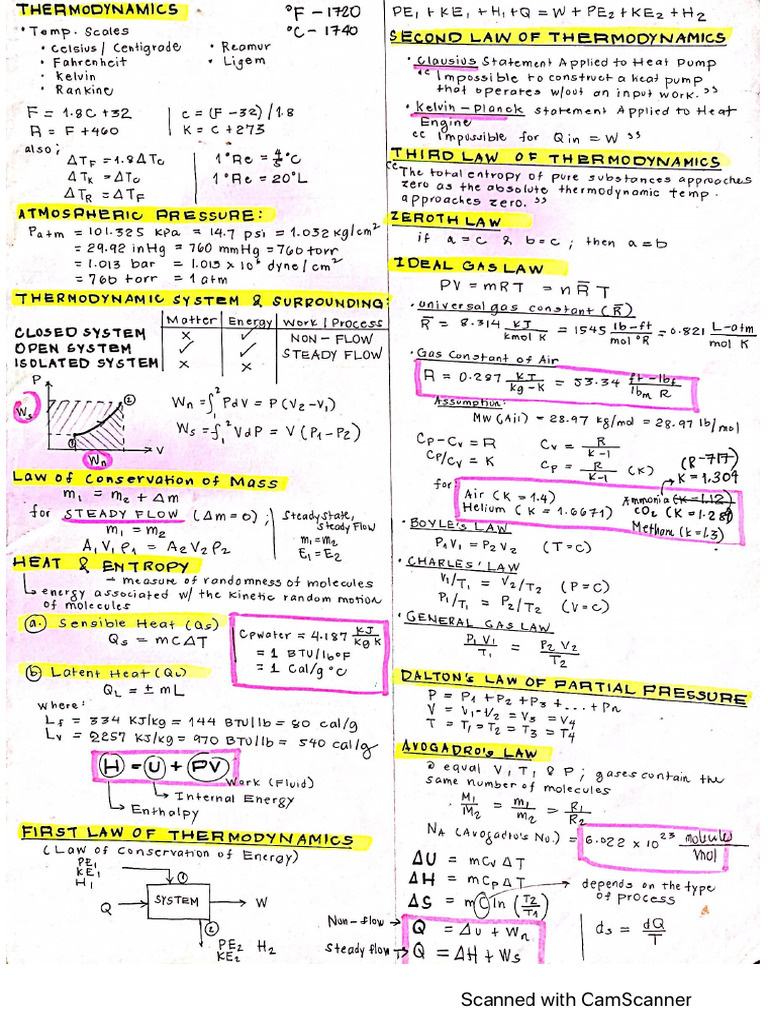 THERMODYNAMICS
°F – 1720
°C – 1740
• Temp. Scales
• Celsius / Centigrade
• Fahrenheit
• Kelvin
• Rankine
• Reamur
• Ligem
F = 1.8C + 32
R = F + 460
C = (F – 32) / 1.8
K = C + 273
also;
ΔTF = 1.8ΔTC
ΔTK = ΔTC
ΔTR = ΔTF
1°Re = 4/5 °C
1°Re = 20°L
ATMOSPHERIC PRESSURE:
Patm = 101.325 KPa = 14.7 psi = 1.032 kg/cm²
= 29.92 inHg = 760 mmHg = 760 torr
= 1.013 bar = 1.013 x 10⁶ dyne/cm²
= 760 torr = 1 atm
THERMODYNAMIC SYSTEM & SURROUNDING:
Matter | Energy | Work / Process
CLOSED SYSTEM × ✓ NON-FLOW
OPEN SYSTEM ✓ ✓ STEADY FLOW
ISOLATED SYSTEM × ×
P
Ws
①
②
V
Wn
Wn = ∫₁² PdV = P(V2 – V1)
Ws = ∫₁² VdP = V(P1 – P2)
Law of Conservation of Mass
m1 = m2 + Δm
for STEADY FLOW (Δm = 0);
m1 = m2
A1V1ρ1 = A2V2ρ2
Steady State,
Steady Flow
m1 = m2
E1 = E2
HEAT & ENTROPY
→ measure of randomness of molecules
↳ energy associated w/ the kinetic random motion
of molecules
(a.) Sensible Heat (Qs)
Qs = mCΔT
Cpwater = 4.187 KJ/kg K
= 1 BTU/lb°F
= 1 Cal/g°C
(b) Latent Heat (QL)
QL = ± mL
where:
Lf = 334 KJ/kg = 144 BTU/lb = 80 cal/g
Lv = 2257 KJ/kg = 970 BTU/lb = 540 cal/g
H = U + PV
Work (Fluid)
Internal Energy
Enthalpy
FIRST LAW OF THERMODYNAMICS
(Law of Conservation of Energy)
PE1
KE1
H1
①
Q → SYSTEM → W
②
PE2 H2
KE2
PE1 + KE1 + H1 + Q = W + PE2 + KE2 + H2
SECOND LAW OF THERMODYNAMICS
• Clausius Statement Applied to Heat Pump
"Impossible to construct a heat pump
that operates w/out an input work."
• Kelvin – Planck statement Applied to Heat
Engine
"Impussible for Qin = W"
THIRD LAW OF THERMODYNAMICS
"The total entropy of pure substances approaches
zero as the absolute thermodynamic temp.
approaches zero."
ZEROTH LAW
if a = c & b = c; then a = b
IDEAL GAS LAW
PV = mRT = nR̄T
• universal gas constant (R̄)
R̄ = 8.314 KJ/kmol K = 1545 lb-ft/mol °R = 0.821 L-atm/mol K
• Gas Constant of Air
R = 0.287 KJ/kg-K = 53.34 ft-lbf/lbm R
Assumption:
MW (Air) = 28.97 kg/mol = 28.97 lb/mol
Cp – Cv = R
Cp/Cv = K
Cv = R/K-1
Cp = R/K-1 (K)
(R-717)
K = 1.304
for:
Air (K = 1.4)
Helium (K = 1.6671)
Ammonia (K = 1.12)
CO2 (K = 1.289)
Methane (K = 1.3)
• BOYLE'S LAW
P1V1 = P2V2 (T = C)
• CHARLES' LAW
V1/T1 = V2/T2 (P = C)
P1/T1 = P2/T2 (V = C)
• GENERAL GAS LAW
P1V1/T1 = P2V2/T2
DALTON'S LAW OF PARTIAL PRESSURE
P = P1 + P2 + P3 + ... + Pn
V = V1 = V2 = V3 = V4
T = T1 = T2 = T3 = T4
AVOGADRO'S LAW
@ equal V, T, & P; gases contain the
same number of molecules
M1/M2 = m1/m2 = R1/R2
NA (Avogadro's No.) = 6.022 x 10²³ molecules/mol
ΔU = mCvΔT
ΔH = mCpΔT
ΔS = mC ln (T2/T1)
→ depends on the type
of process
Non-flow → Q = ΔU + Wn
Steady flow → Q = ΔH + Ws
ds = dQ/T
Scanned with CamScanner